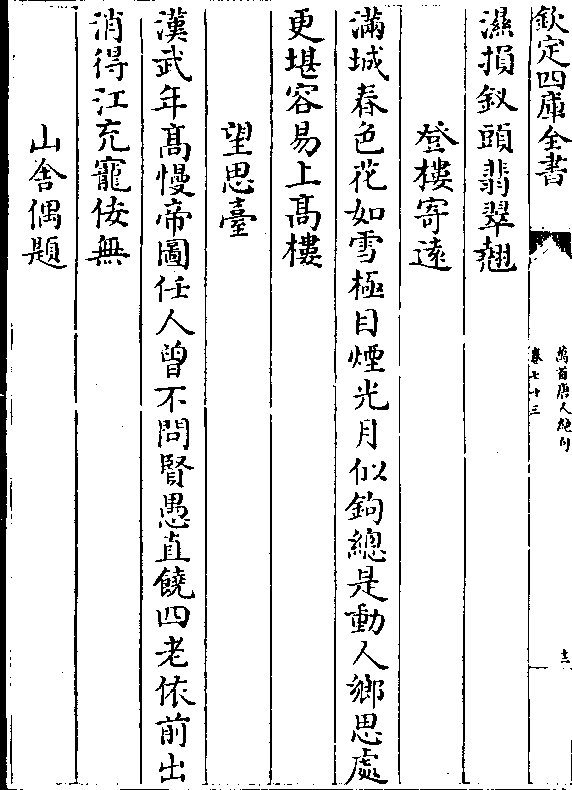 欽定四庫全書
萬首唐人絶句
卷七十三
十二
濕損釵頭翡翠翹
登樓寄逺
滿城春色花如雪極目煙光月似鉤總是動人鄉思處
更堪容易上髙樓
望思臺
漢武年髙慢帝圖任人曾不問賢愚直饒四老依前出
消得江充寵佞無
山舎偶題